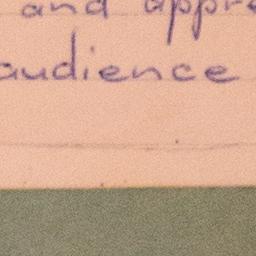 and appre
audience